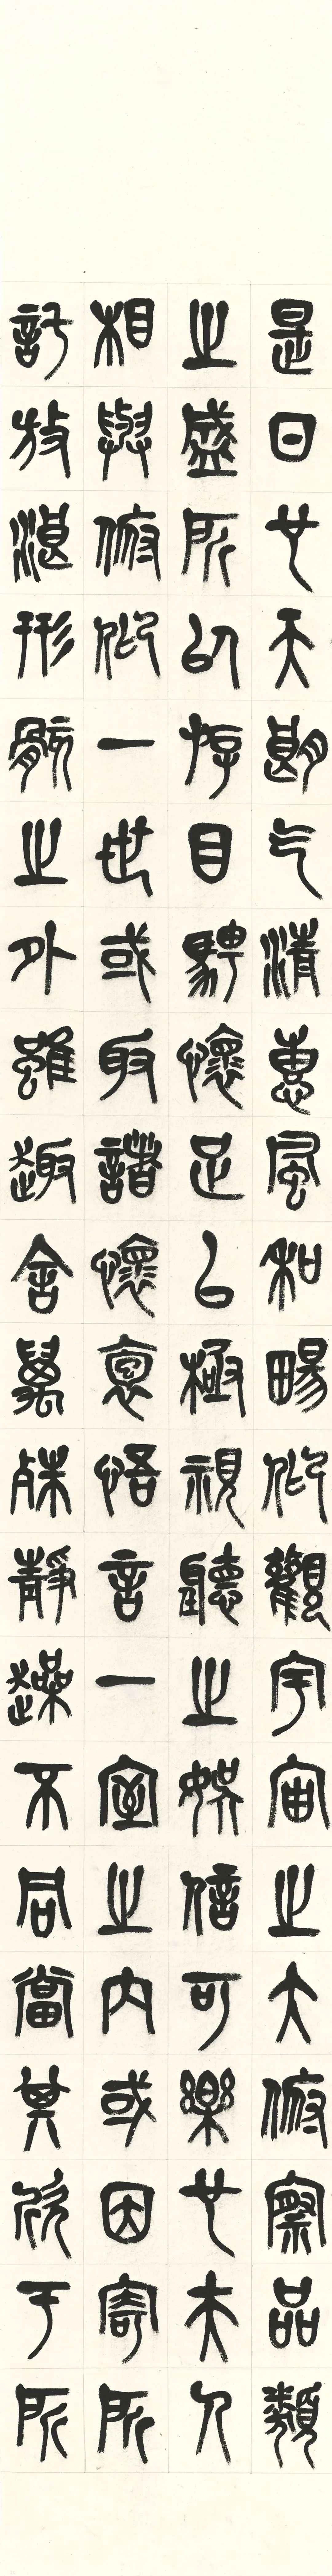 是日也天朗气清惠風和暢仰觀宇宙之大俯察品類
之盛所以游目騁懷足以極視聽之娛信可樂也夫人
相與俯仰一世或取諸懷裹悟言一室之內或因寄所
託放湛形骸之外雖趣舍萬殊靜躁不同當其欣于所